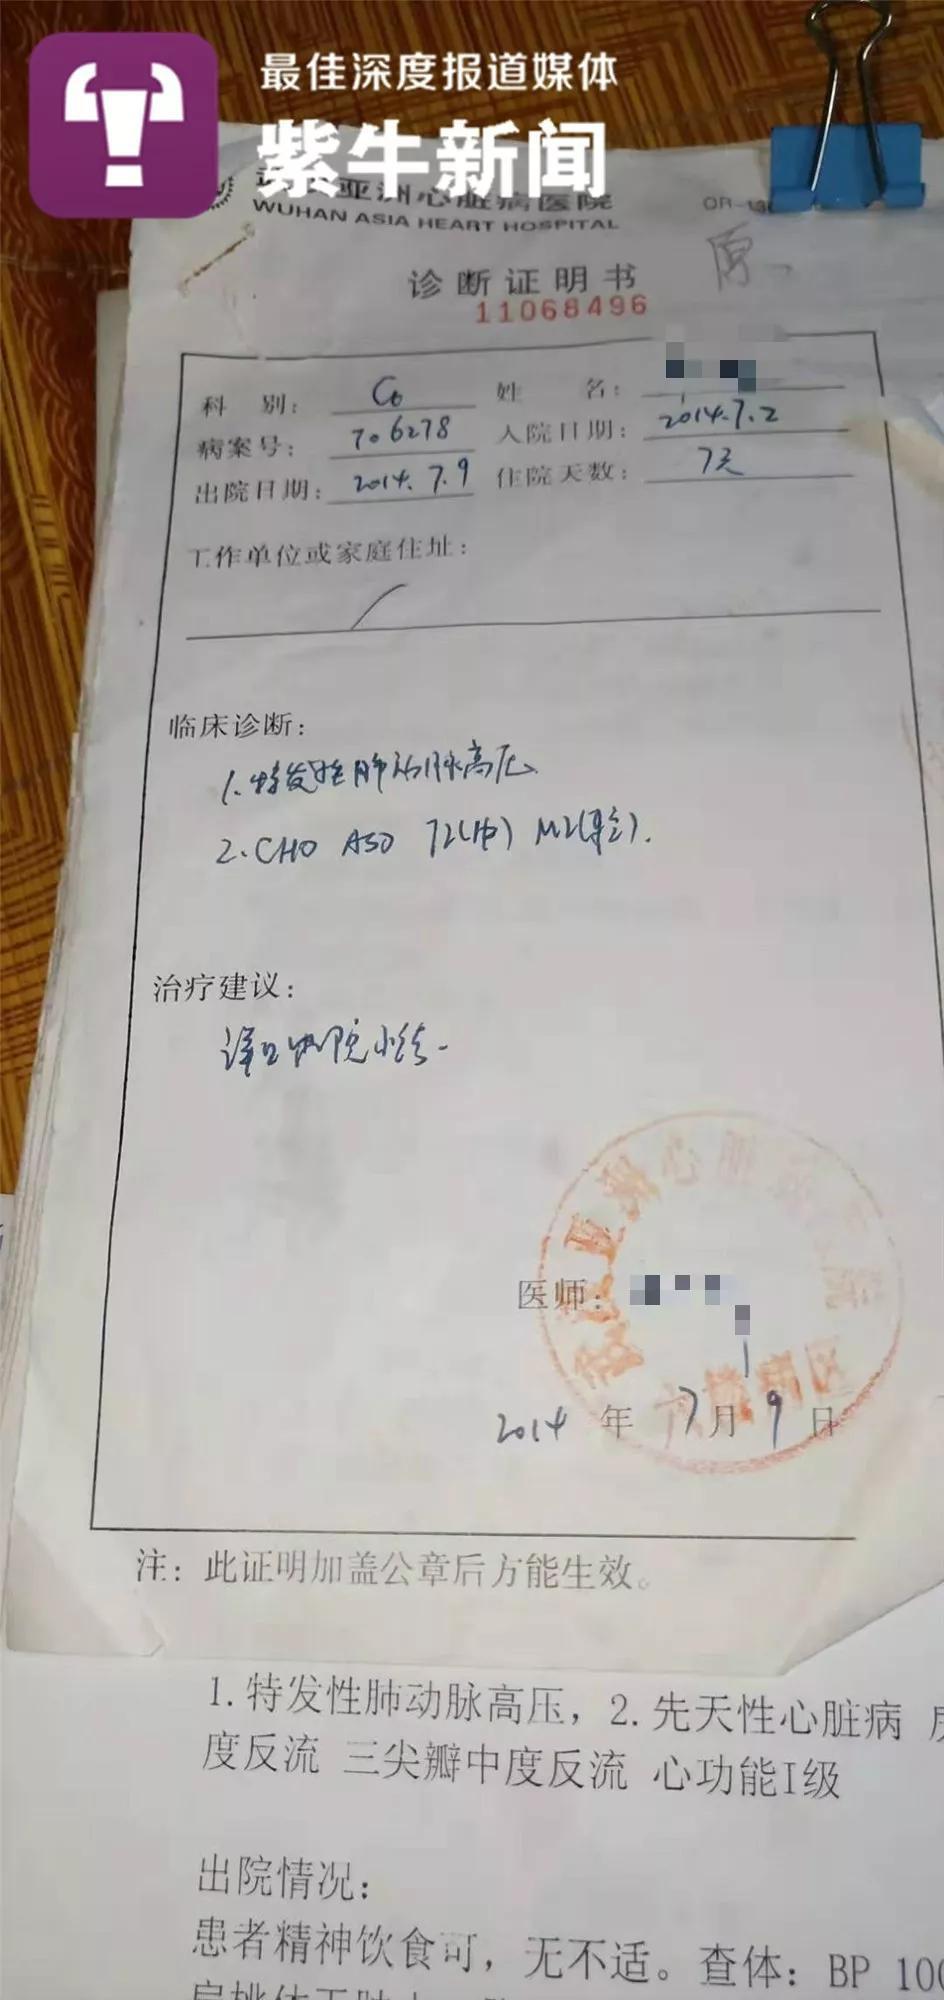 最佳深度报道媒体
紫牛新闻
亚洲心脏病医院
WUHAN ASIA HEART HOSPITAL
诊断证明书
原
11068496
科 别： C6 姓 名：
病案号： 706278 入院日期： 2014.7.2
出院日期： 2014.7.9 住院天数： 7天
工作单位或家庭住址：
临床诊断：
1.特发性肺动脉高压
2.CHD ASD
治疗建议：
详见出院小结.
医师：
2014 年 7 月 9 日
注：此证明加盖公章后方能生效。
1.特发性肺动脉高压，2.先天性心脏病
度反流 三尖瓣中度反流 心功能I级
出院情况：
患者精神饮食可，无不适。查体：BP 100